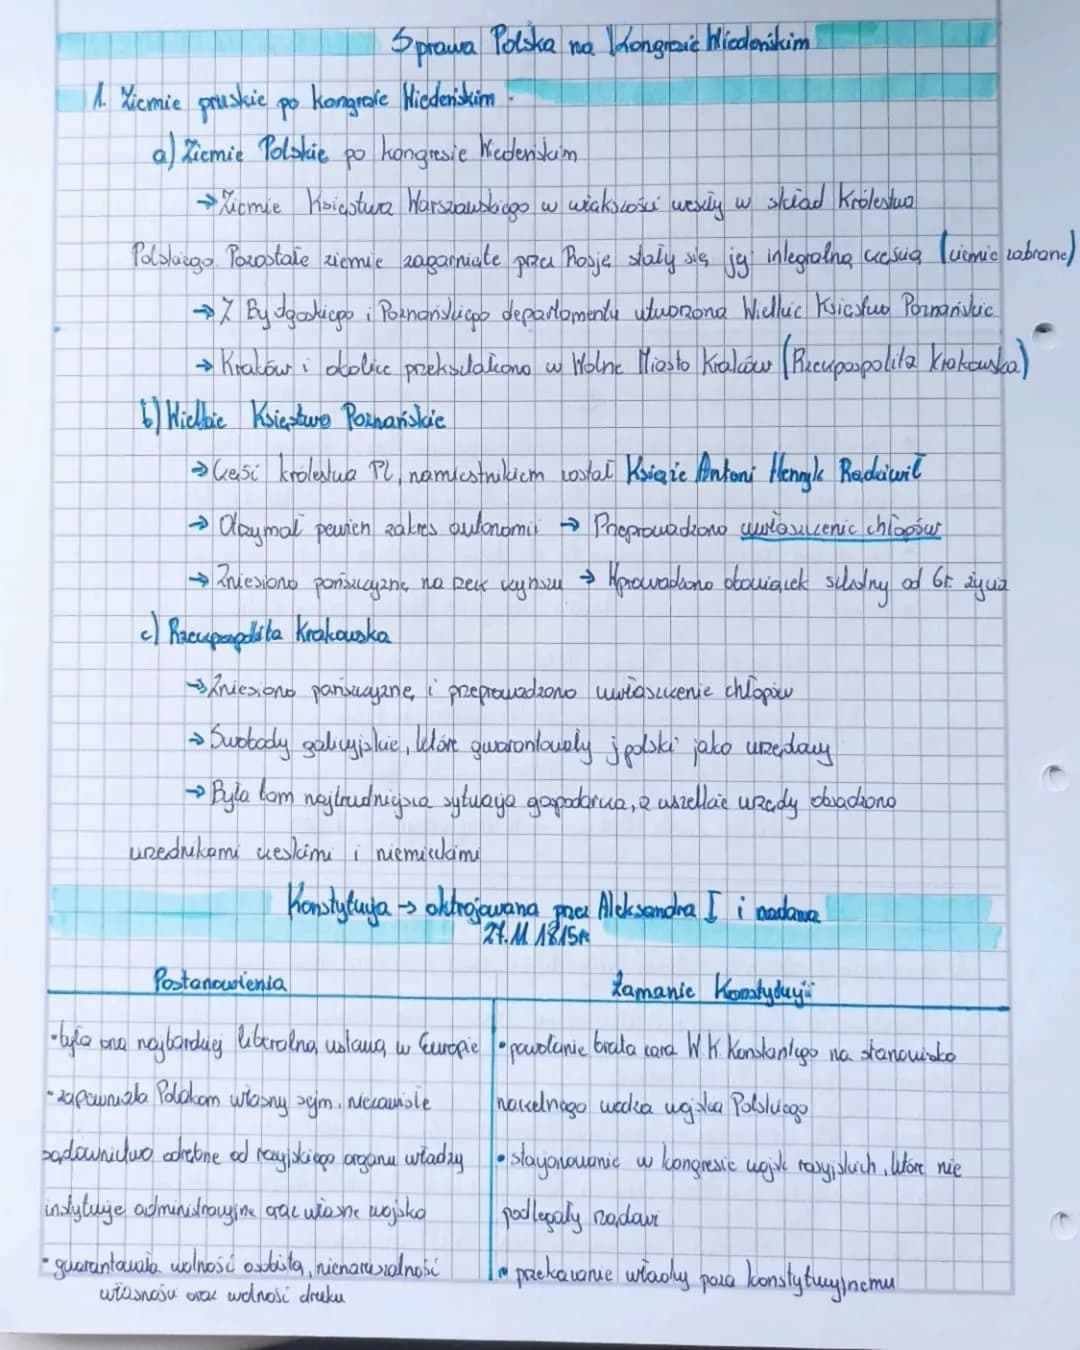 Sprawa Polska na Kongresie Wiedeńskim
1. Ziemie pruskie po kongresie Wiedeńskim
a) Ziemie Polskie po kongresie Wiedeńskim
→ Ziemie Księstwa Warszawskiego w większości weszły w skład Królestwa
Polskiego. Pozostałe ziemie zagarnięte przez Rosję stały się jej integralną częścią (ziemie zabrane)
→ Z Bydgoskiego i Poznańskiego departamentu utworzona Wielkie Księstwo Poznańskie
→ Kraków i okolice przekształcono w Wolne Miasto Kraków (Rzeczpospolita Krakowska)
b) Wielkie Księstwo Poznańskie
→ Cześć królestwa PL, namiestnikiem został Książe Antoni Henryk Radziwił
→ Otrzymał pewien zakres autonomii → Przeprowadzono uwłaszczenie chłopów
→ Zniesiono pańszczyznę na rzecz czynszu → Wprowadzono obowiązek szkolny od 6r. życia
c) Rzeczpospolita Krakowska
→ Zniesiono pańszczyznę i przeprowadzono uwłaszczenie chłopów
→ Swobody galicyjskie, które gwarantowały j polski jako urzędowy
→ Była tam najtrudniejsza sytuacja gospodarcza, a wszelkie urzędy obsadzono
urzednikami czeskimi i niemieckimi
Konstytucja → oktrojowana przez Aleksandra I i nadana
27.11 1815r
Postanowienia
Łamanie Konstytucji
• była ona najbardziej liberalną ustawą w Europie
• zapewniała Polakom własny sejm, niezawisłe
sądownictwo odrębne od rosyjskiego organu władzy
instytucje administracyjne oraz własne wojsko
• gwarantowała wolność osobistą, nienaruszalność
własności oraz wolność druku
• powołanie brata cara W.K Konstantego na stanowisko
naczelnego wodza wojska Polskiego
• stacjonowanie w kongresie wojsk rosyjskich, które nie
podlegały rządowi
• przekazanie władzy poza konstytucyjnemu